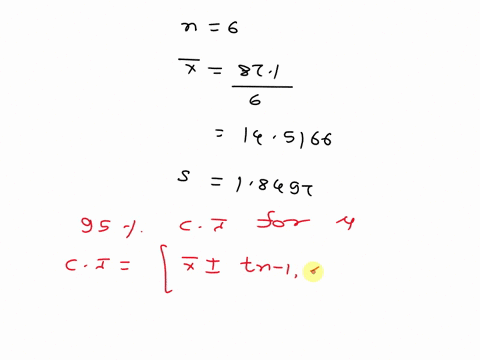 n = 6
x̄ = 87.1
6
= 14.5166
s = 1.8497
95 %. C.I for μ
C.I = [ x̄ ± tn-1,